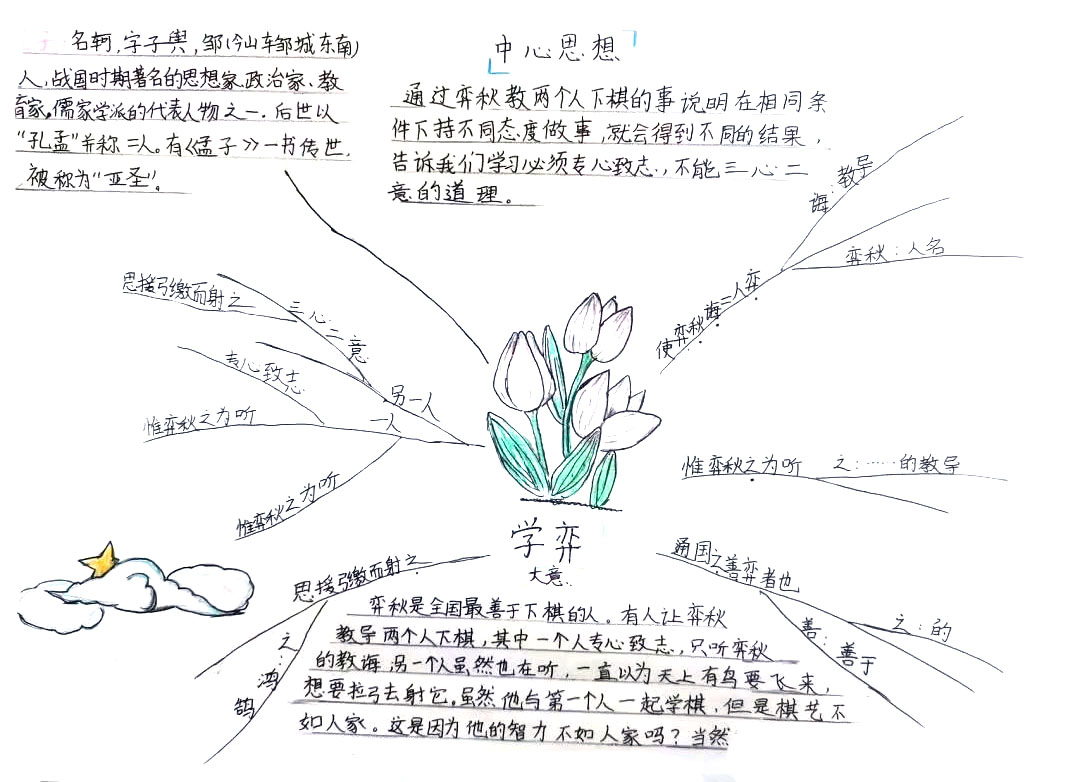 名轲,字子舆,邹(今山车邹城东南)
人,战国时期著名的思想家、政治家、教
育家。儒家学派的代表人物之一.后世以
“孔孟”并称二人。有《孟子》一书传世.
被称为“亚圣”。
中心思想
通过弈秋教两个人下棋的事说明在相同条
件下持不同态度做事,就会得到不同的结果,
告诉我们学习必须专心致志,不能三心二
意的道理。
诲:教导
弈秋:人名
使弈秋诲二人弈
思援弓缴而射之
三心二意
专心致志
另一人
一人
惟弈秋之为听
惟弈秋之为听
惟弈秋之为听 之:……的教导
学弈
大意
通国之善弈者也
之:的
善:善于
思援弓缴而射之
之:鸿鹄
弈秋是全国最善于下棋的人。有人让弈秋
教导两个人下棋,其中一个人专心致志,只听弈秋
的教诲,另一个人虽然也在听,一直以为天上有鸟要飞来,
想要拉弓去射它。虽然他与第一个人一起学棋,但是棋艺不
如人家。这是因为他的智力不如人家吗?当然